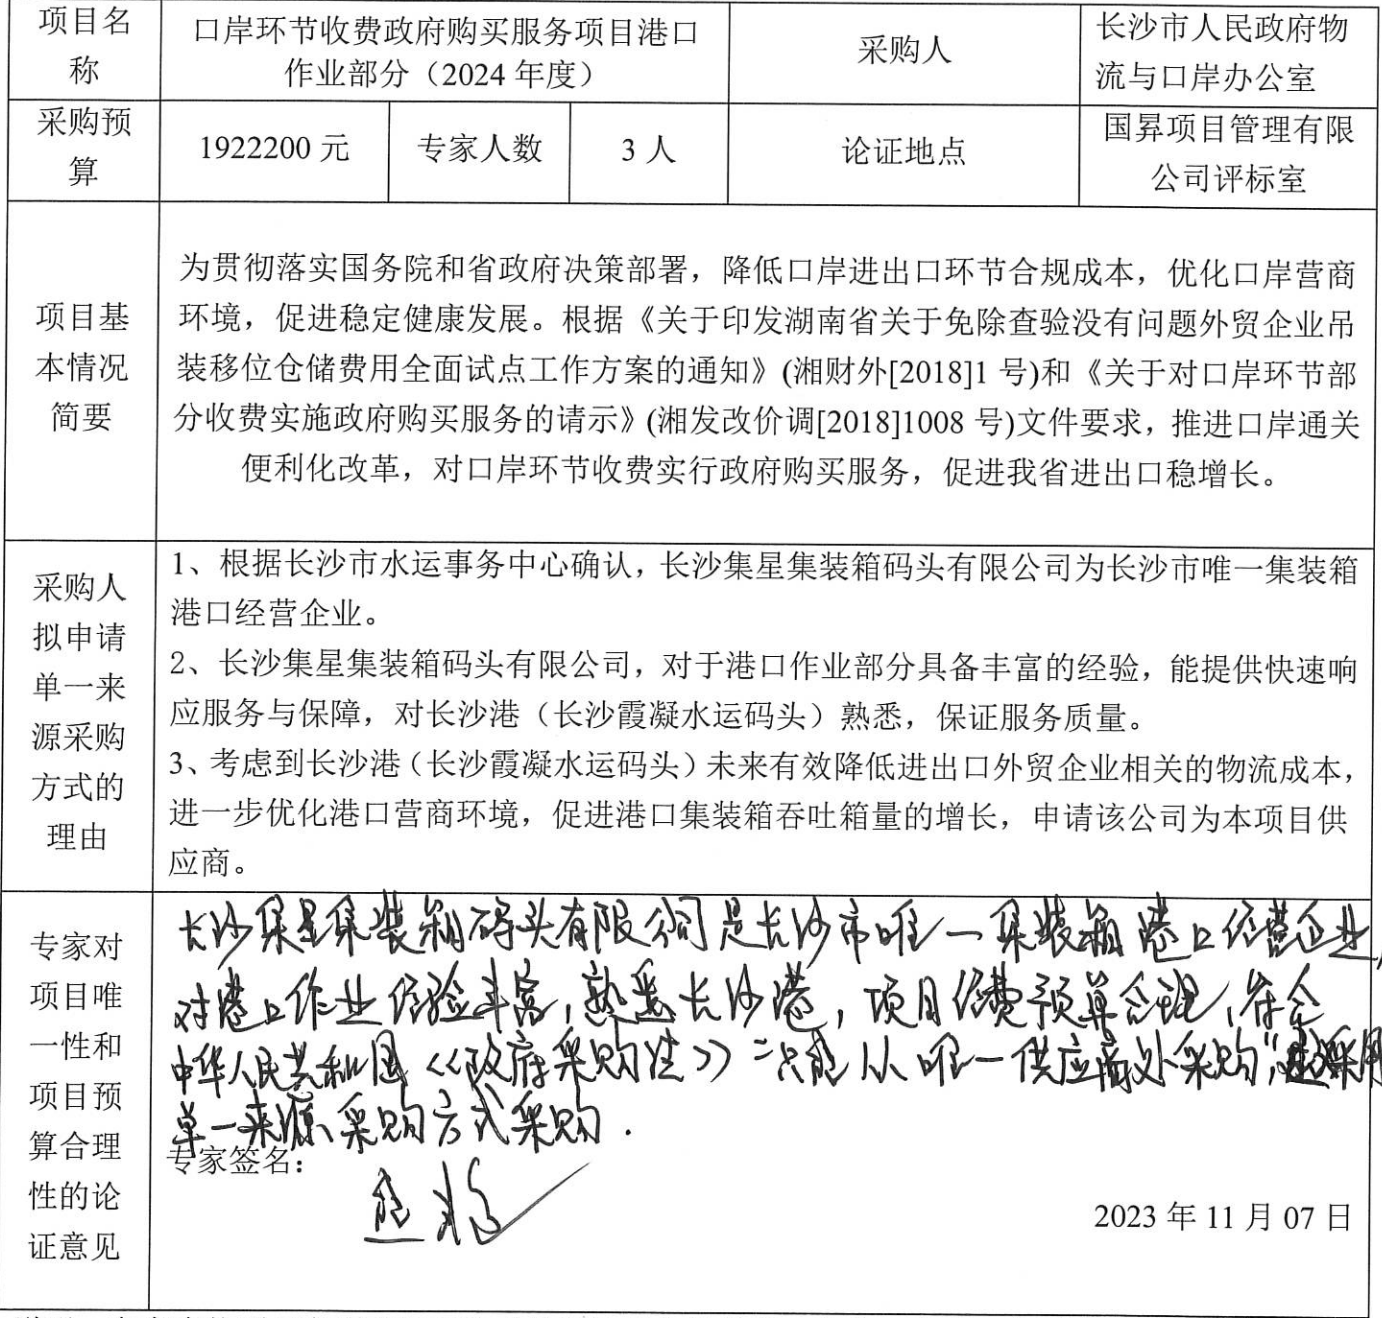 项目名称
口岸环节收费政府购买服务项目港口
作业部分（2024 年度）
采购人
长沙市人民政府物
流与口岸办公室
采购预算
1922200 元
专家人数
3 人
论证地点
国昇项目管理有限
公司评标室
项目基
本情况
简要
为贯彻落实国务院和省政府决策部署，降低口岸进出口环节合规成本，优化口岸营商
环境，促进稳定健康发展。根据《关于印发湖南省关于免除查验没有问题外贸企业吊
装移位仓储费用全面试点工作方案的通知》(湘财外[2018]1 号)和《关于对口岸环节部
分收费实施政府购买服务的请示》(湘发改价调[2018]1008 号)文件要求，推进口岸通关
便利化改革，对口岸环节收费实行政府购买服务，促进我省进出口稳增长。
采购人
拟申请
单一来
源采购
方式的
理由
1、根据长沙市水运事务中心确认，长沙集星集装箱码头有限公司为长沙市唯一集装箱
港口经营企业。
2、长沙集星集装箱码头有限公司，对于港口作业部分具备丰富的经验，能提供快速响
应服务与保障，对长沙港（长沙霞凝水运码头）熟悉，保证服务质量。
3、考虑到长沙港（长沙霞凝水运码头）未来有效降低进出口外贸企业相关的物流成本，
进一步优化港口营商环境，促进港口集装箱吞吐箱量的增长，申请该公司为本项目供
应商。
专家对
项目唯
一性和
项目预
算合理
性的论
证意见
长沙集星集装箱码头有限公司是长沙市唯一集装箱港口经营企业，
对港口作业经验丰富，熟悉长沙港，项目经费预算合理，符合
中华人民共和国《政府采购法》"只能从唯一供应商处采购"，建议采用
单一来源采购方式采购.
专家签名：
2023 年 11 月 07 日